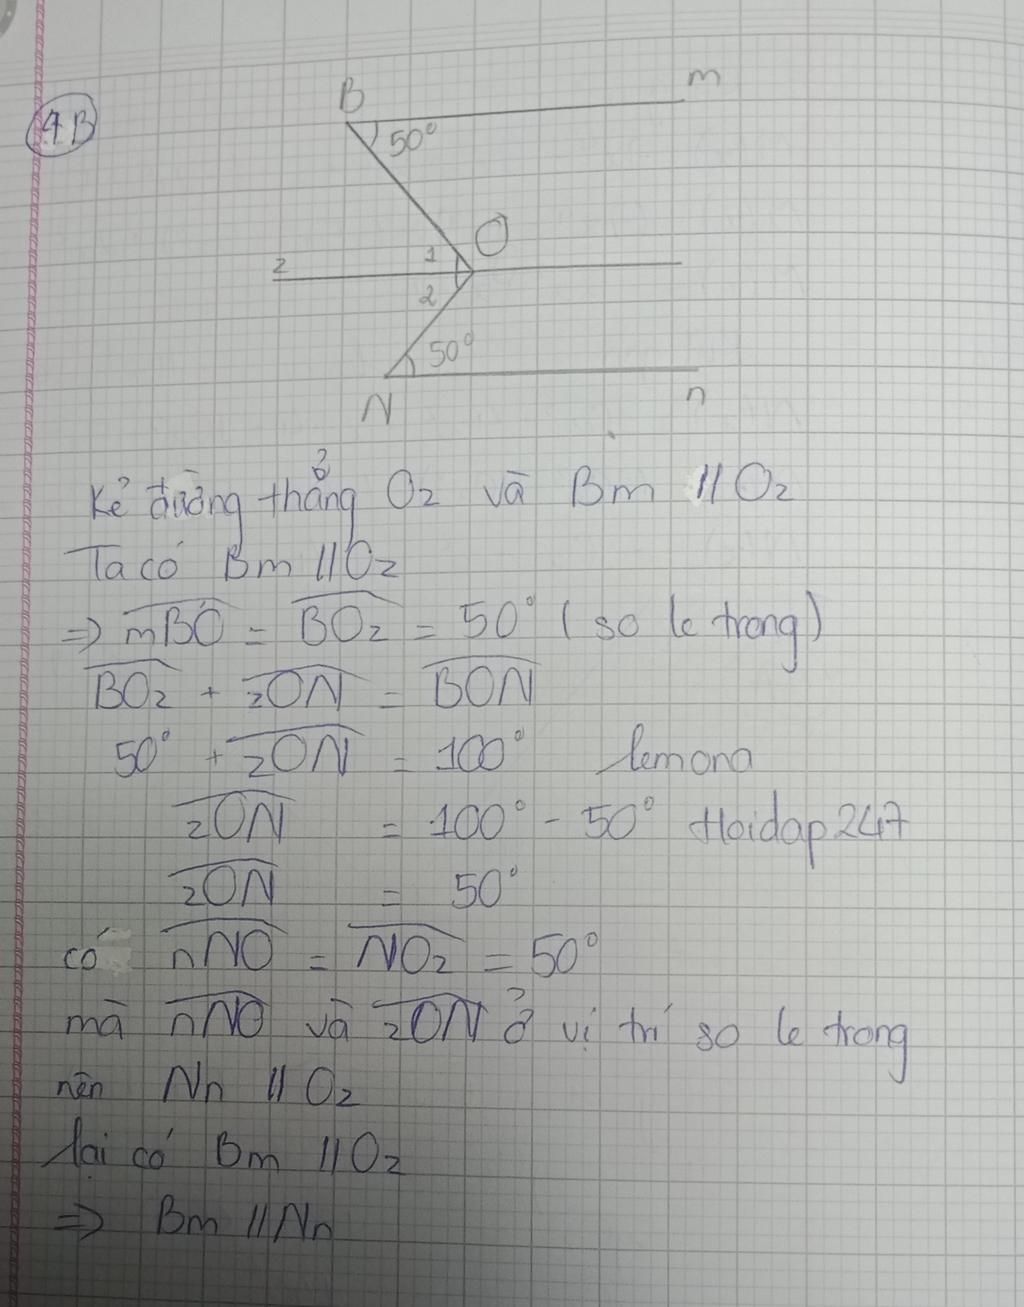 4B
B
m
50°
O
1
z
2
50°
N
n
Kẻ đường thẳng Oz và Bm // Oz
Ta có Bm // Oz
=> mBO = BOz = 50° (so le trong)
BOz + zON = BON
50° + zON = 100° lemona
zON = 100° - 50° Hoidap247
zON = 50°
có nNO = NOz = 50°
mà nNO và zON ở vị trí so le trong
nên Nn // Oz
lại có Bm // Oz
=> Bm // Nn